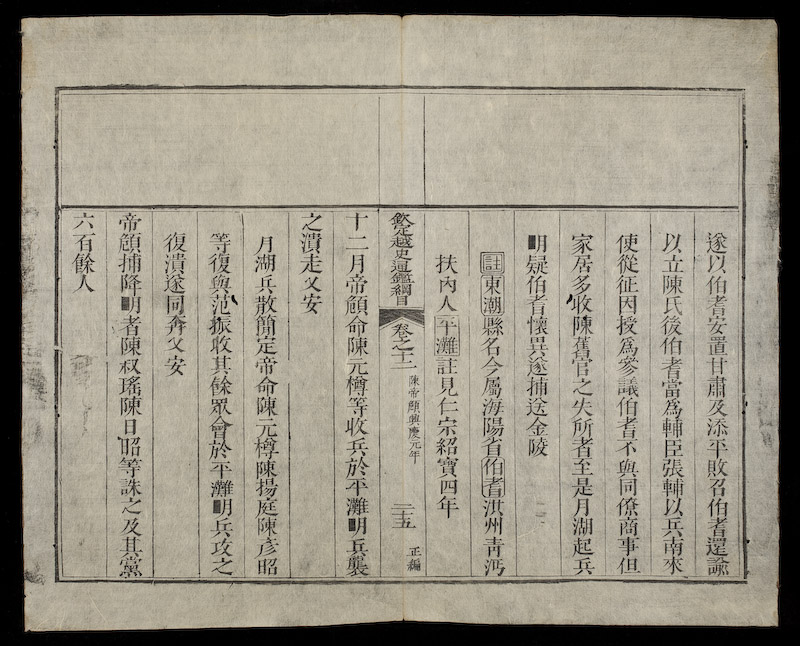 遂以伯耆安置甘肅及添平敗召伯耆還諭
以立陳氏後伯耆當爲輔臣張輔以兵南來
使從征因授爲參議伯耆不與同僚商事但
家居多收陳舊官之失所者至是月湖起兵
明疑伯耆懷異遂捕送金陵
註東潮縣名今屬海陽省伯耆洪州青沔
扶內人平灘註見仁宗紹寶四年
欽定越史通鑑綱目 卷之十二 陳帝頠興慶元年 二十五 正編
十二月帝頠命陳元樽等收兵於平灘明兵襲
之潰走乂安
月湖兵散簡定帝命陳元樽陳揚庭陳彥昭
等復與范振收其餘眾會於平灘明兵攻之
復潰遂同奔乂安
帝頠捕降明者陳叔瑤陳日昭等誅之及其黨
六百餘人